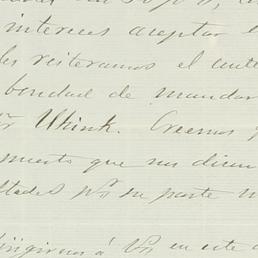 intereses aceptar e
les reiteramos el
bondad de mandar
Sr Uhink. Creemos
muerto que nos dicen
ltades pr su parte
dirigirnos á Vs en este